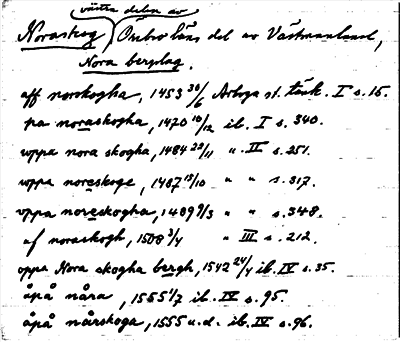 västra delen av
Noraskog) Örebro läns del av Västmanland,
Nora bergslag.
aff norskogha, 1453 30/6 Arboga st. tänk. I s. 15.
pa noraskogha, 1470 10/12 ib. I s. 340.
vppa nora skogha, 1484 22/11 " II s. 251.
vppa noreskoge, 1487 15/10 " " s. 317.
vppa noreskogha, 1489 9/3 " " s. 348.
af noraskogh, 1508 3/4 " III s. 212.
oppa Nora skogha bergh, 1542 24/4 ib. IV s. 35.
åpå nåra, 1555 1/7 ib. IV s. 95.
åpå nårskoga, 1555 u.d. ib. IV s. 96.